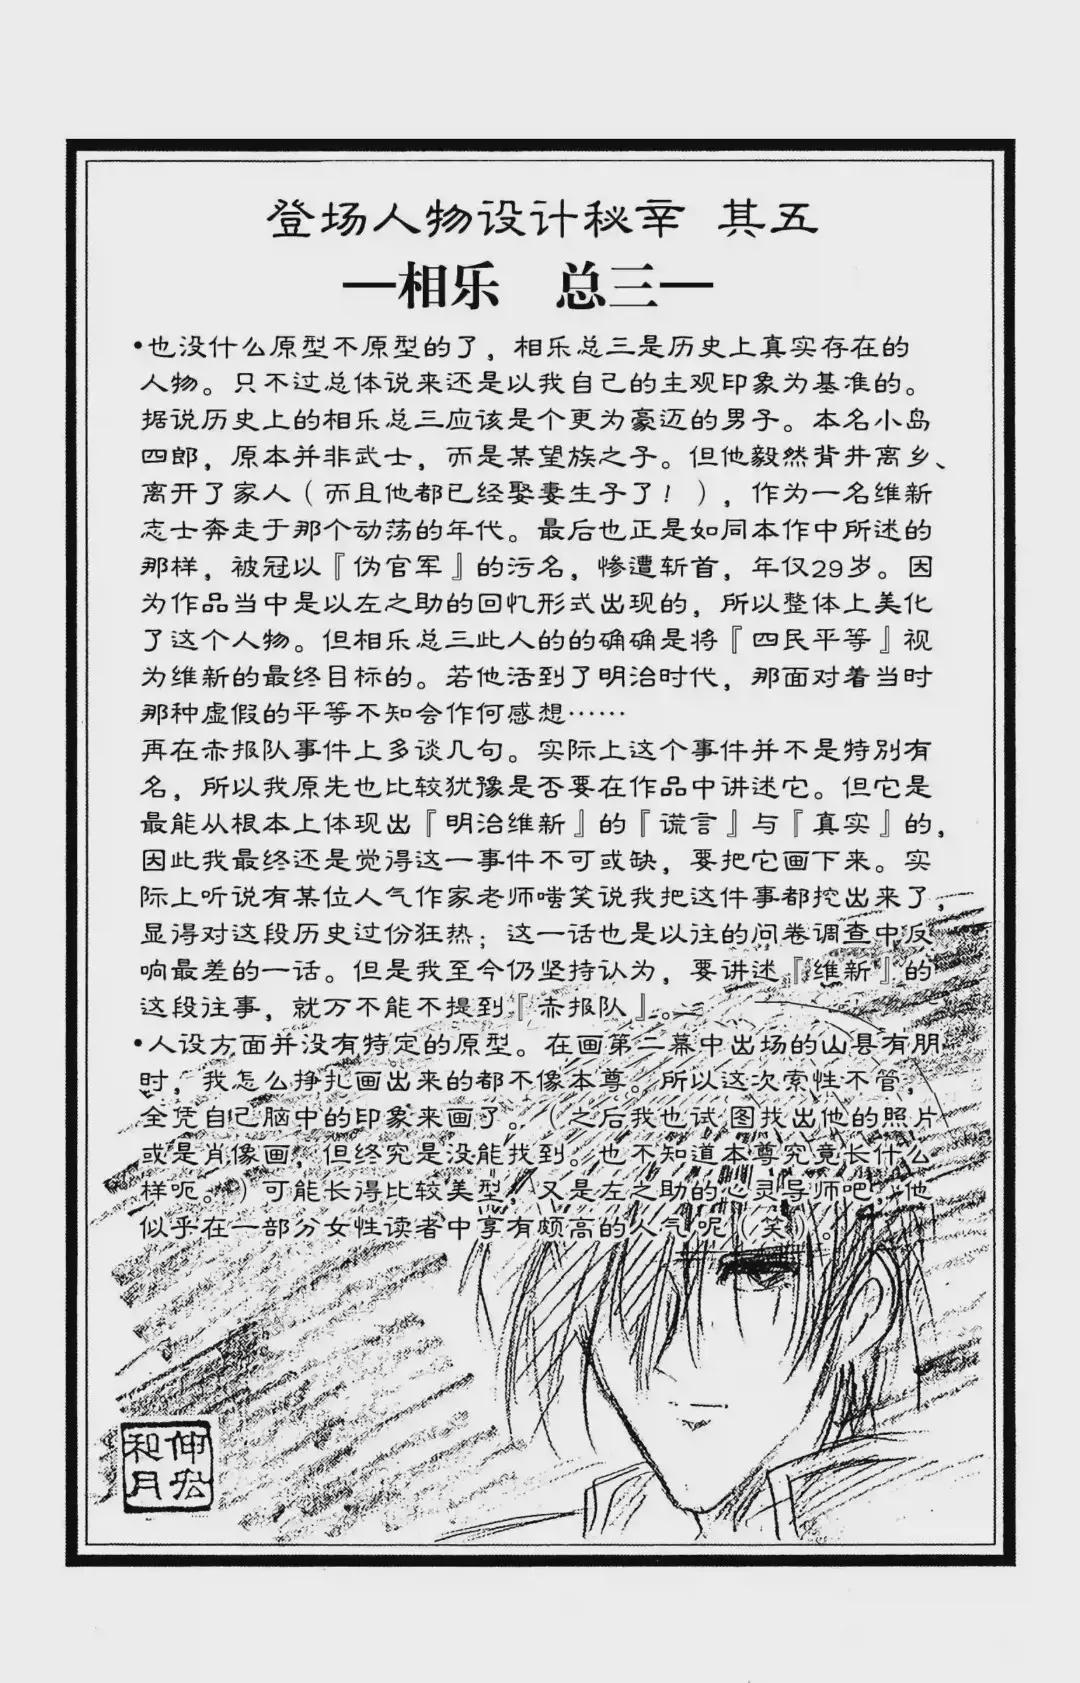 登场人物设计秘辛 其五
—相乐 总三—
•也没什么原型不原型的了，相乐总三是历史上真实存在的
人物。只不过总体说来还是以我自己的主观印象为基准的。
据说历史上的相乐总三应该是个更为豪迈的男子。本名小岛
四郎，原本并非武士，而是某望族之子。但他毅然背井离乡、
离开了家人（而且他都已经娶妻生子了！），作为一名维新
志士奔走于那个动荡的年代。最后也正是如同本作中所述的
那样，被冠以『伪官军』的污名，惨遭斩首，年仅29岁。因
为作品当中是以左之助的回忆形式出现的，所以整体上美化
了这个人物。但相乐总三此人的的确确是将『四民平等』视
为维新的最终目标的。若他活到了明治时代，那面对着当时
那种虚假的平等不知会作何感想……
再在赤报队事件上多谈几句。实际上这个事件并不是特别有
名，所以我原先也比较犹豫是否要在作品中讲述它。但它是
最能从根本上体现出『明治维新』的『谎言』与『真实』的，
因此我最终还是觉得这一事件不可或缺，要把它画下来。实
际上听说有某位人气作家老师嗤笑说我把这件事都挖出来了，
显得对这段历史过份狂热；这一话也是以往的问卷调查中反
响最差的一话。但是我至今仍坚持认为，要讲述『维新』的
这段往事，就万不能不提到『赤报队』。
•人设方面并没有特定的原型。在画第二幕中出场的山县有朋
时，我怎么挣扎画出来的都不像本尊。所以这次索性不管，
全凭自己脑中的印象来画了。（之后我也试图找出他的照片
或是肖像画，但终究是没能找到。也不知道本尊究竟长什么
样呃。）可能长得比较美型，又是左之助的心灵导师吧，他
似乎在一部分女性读者中享有颇高的人气呢（笑）。
伸宏
和月